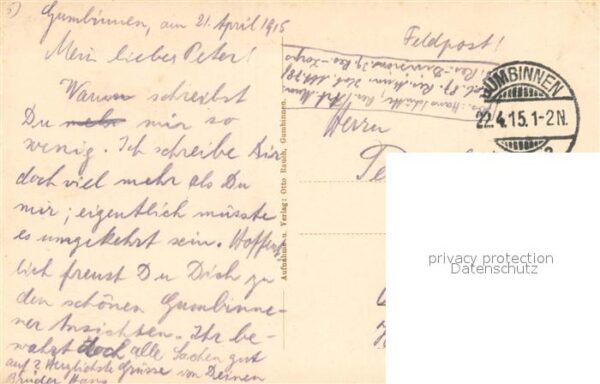 Gumbinnen, am 21. April 1915
Mein lieber Peter!
Warum schreibst
Du mir so
wenig. Ich schreibe Dir
doch viel mehr als Du
mir; eigentlich müsste
es umgekehrt sein. Hoffent-
lich freust Du Dich zu
den schönen Gumbinne-
ner Ansichten. Ihr be-
wahrt doch alle Sachen gut
auf? Herzlichste Grüsse von Deinem
Bruder Hans
Aufnahme u. Verlag: Otto Rauch, Gumbinnen.
Feldpost!
GUMBINNEN
22.4.15.1-2N.
Herrn
privacy protection
Datenschutz